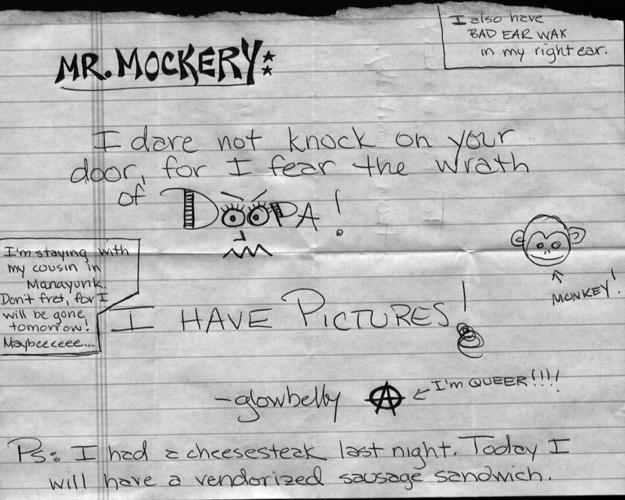 I also have
BAD EAR WAX
in my right ear.
MR. MOCKERY:
I dare not knock on your
door, for I fear the wrath
of DOOPA!
I'm staying with
my cousin in
Manayunk.
Don't fret, for I
will be gone
tomorrow!
Maybeeeeee...
MONKEY!
I HAVE PICTURES!
-glowbelly
I'M QUEER!!!!
Ps: I had a cheesesteak last night. Today I
will have a vendorized sausage sandwich.